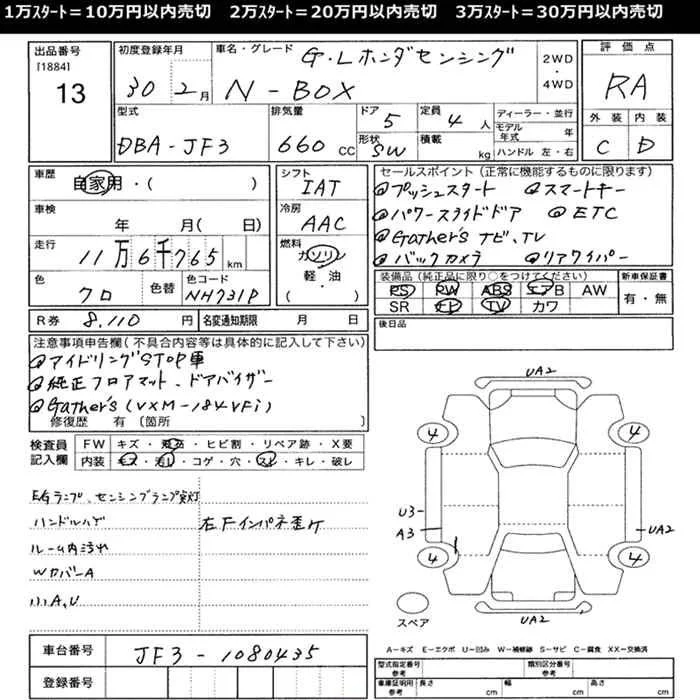 1万ｽﾀｰﾄ＝10万円以内売切　2万ｽﾀｰﾄ＝20万円以内売切　3万ｽﾀｰﾄ＝30万円以内売切
出品番号
[1884]
13
初度登録年月
30 2月
車名・グレード
G・Lホンダセンシング
N-BOX
2WD
・
4WD
評価点
RA
外装 内装
C D
型式
DBA-JF3
排気量
660 CC
ドア
5
形状
SW
定員
4 人
積載
kg
ディーラー・並行
モデル年式 年
ハンドル 左・右
車歴
自家用・( )
車検
年 月( 日)
走行
11万6千765 km
色
クロ
色替
色コード
NH731P
シフト
IAT
冷房
AAC
燃料
ガソリン
軽・油
( ・ )
セールスポイント（正常に機能するものに限ります）
@プッシュスタート @スマートキー
@パワースライドドア @ETC
@Gather's ナビ、TV
@バックカメラ @リアワイパー
装備品（純正品に限り○をつけてください）
PS PW ABS エアB AW
SR ナビ TV カワ
新車保証書
有・無
R券 8,110 円
名変通知期限 月 日
後日品
注意事項申告欄（不具合内容等は具体的に記入して下さい）
@アイドリングSTOP車
@純正フロアマット、ドアバイザー
@Gather's(VXM-184VFi)
修復歴 有 〔箇所 〕
検査員
記入欄
FW キズ・飛石・ヒビ割・リペア跡・X要
内装 モス・汚レ・コゲ・穴・スレ・キレ・破レ
EGランプ、センシングランプ点灯
ハンドルハゲ 右Fインパネ歪ケ
ルーム内汚れ
WカバーA
小A,U
車台番号 JF3-1080435
登録番号
UA2
4 4
U3
A3
UA2
4 4
UA2
スペア
A－キズ E－エクボ U－凹み W－補修跡 S－サビ C－腐食 XX－交換済
型式指定番号
参考
類別区分番号
参考
車庫証明用
参考
長さ cm
幅 cm
高さ cm